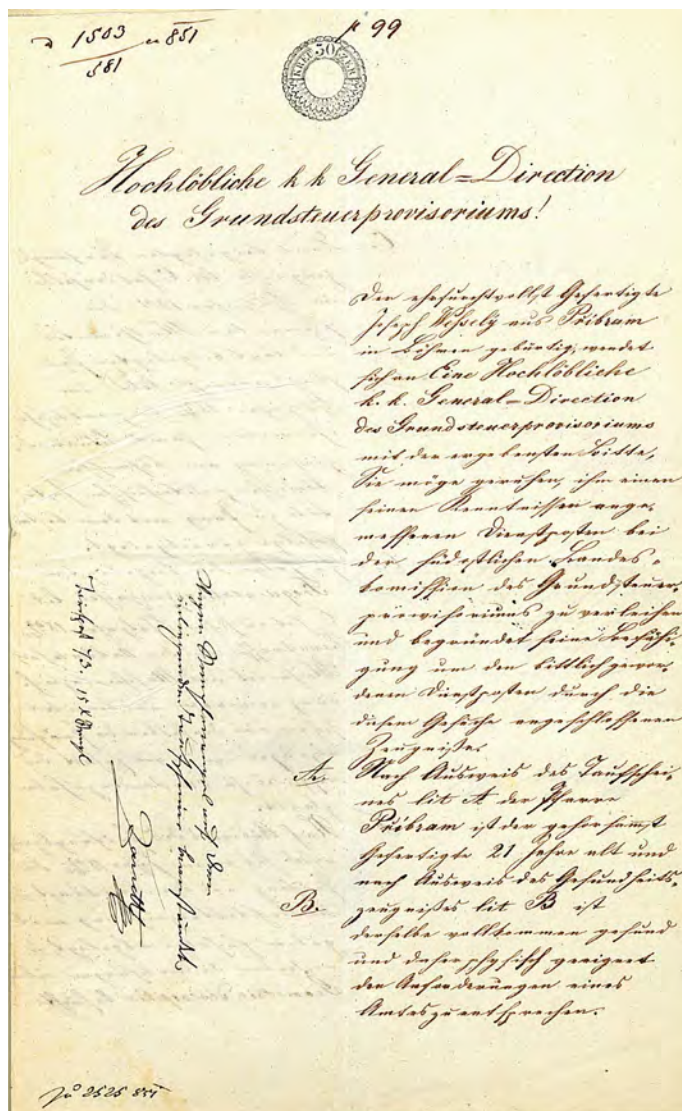 1503 851
581
99
50 KREUZER
Hochlöbliche k k General=Direction
des Grundsteuerprovisoriums!
Der ehrfurchtvollst Gefertigte
Joseph Wessely aus Přibram
in Böhmen gebürtig, wendet
sich an Eine Hochlöbliche
k. k. General-Direction
des Grundsteuerprovisoriums
mit der ergebensten Bitte,
Sie möge geruhen, ihm einen
seinen Kenntnissen ange,
messenen Dienstposten bei
der südostlichen Landes-
komission des Grundsteuer,
proviso­riums zu verleihen
und begründet seine Befähi,
gung um den bittlichgewor,
denen Dienstposten durch die
diesem Gesuche angeschlossenen
Zeugnisse.
A. Nach Ausweis des Taufschei,
nes lit A der Pfarre
Přibram ist der gehorsamst
Gefertigte 21 Jahre alt und
nach Ausweis des Gesundheits,
B. zeugnißes lit B ist
derselbe vollkommen gesund
und daher physisch geeignet
den Anforderungen eines
Amtes zu entsprechen.
2525 851